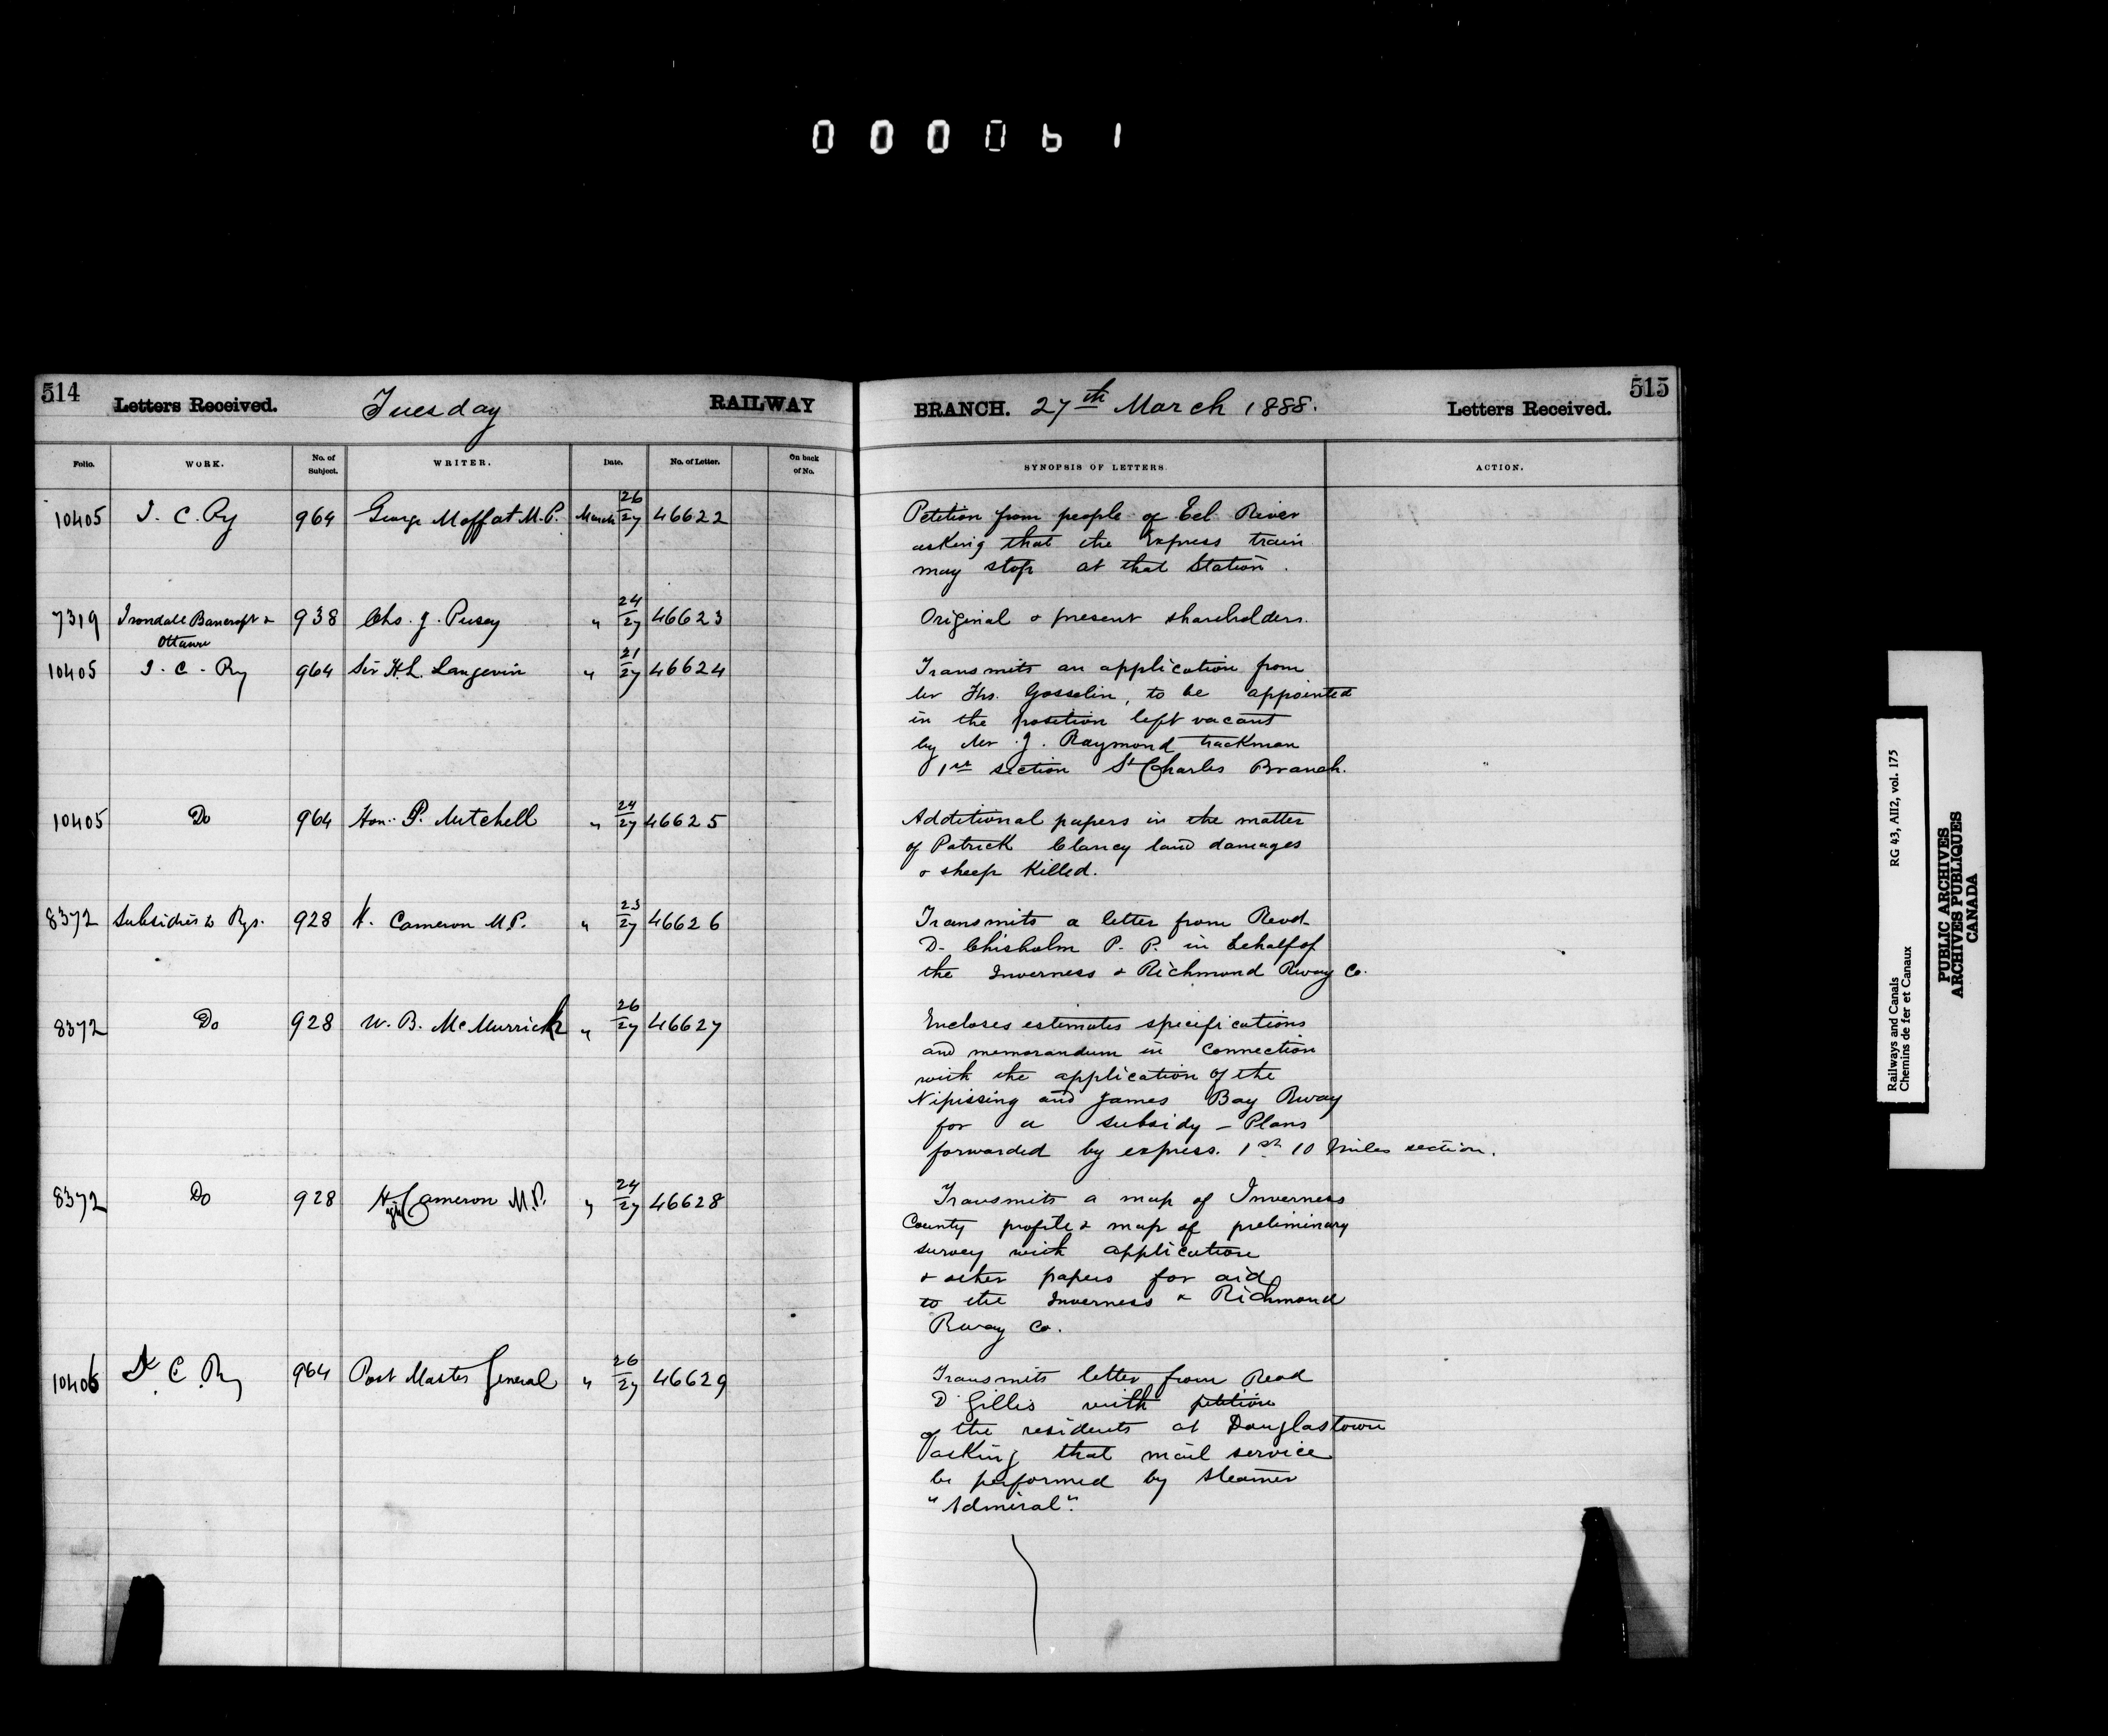 000061
514 Letters Received. Tuesday RAILWAY
BRANCH. 27th March 1888. Letters Received. 515
Folio. WORK. No. of Subject. WRITER. Date. No. of Letter. On back of No.
SYNOPSIS OF LETTERS. ACTION.
10405 I. C. Ry 964 George Moffat M.P. March 26/27 46622
Petition from people of Eel River
asking that the Express train
may stop at that Station.
7319 Irondale Bancroft & Ottawa 938 Chs. J. Pusey " 24/27 46623
Original & present shareholders.
10405 I. C. Ry 964 Sir H. L. Langevin " 21/27 46624
Transmits an application from
Mr Ths. Gosselin, to be appointed
in the position left vacant
by Mr J. Raymond trackman
1st section St Charles Branch.
10405 Do 964 Hon. P. Mitchell " 24/27 46625
Additional papers in the matter
of Patrick Clancy land damages
& sheep killed.
8372 Subsidies to Rys. 928 H. Cameron M.P. " 23/27 46626
Transmits a letter from Revd.
D. Chisholm P. P. in behalf of
the Inverness & Richmond Rway Co.
8372 Do 928 W. B. McMurrich " 26/27 46627
Encloses estimates specifications
and memorandum in connection
with the application of the
Nipissing and James Bay Rway
for a subsidy - Plans
forwarded by express. 1st 10 miles section.
8372 Do 928 Hugh Cameron M.P. " 24/27 46628
Transmits a map of Inverness
County profile & map of preliminary
survey with application
& other papers for aid
to the Inverness & Richmond
Rway Co.
10406 I. C. Ry 964 Post Master General " 26/27 46629
Transmits letter from Revd
D Gillis with petition
of the residents at Douglastown
asking that mail service
be performed by steamer
"Admiral".
Railways and Canals RG 43, AII2, vol. 175
Chemins de fer et Canaux
PUBLIC ARCHIVES
ARCHIVES PUBLIQUES
CANADA